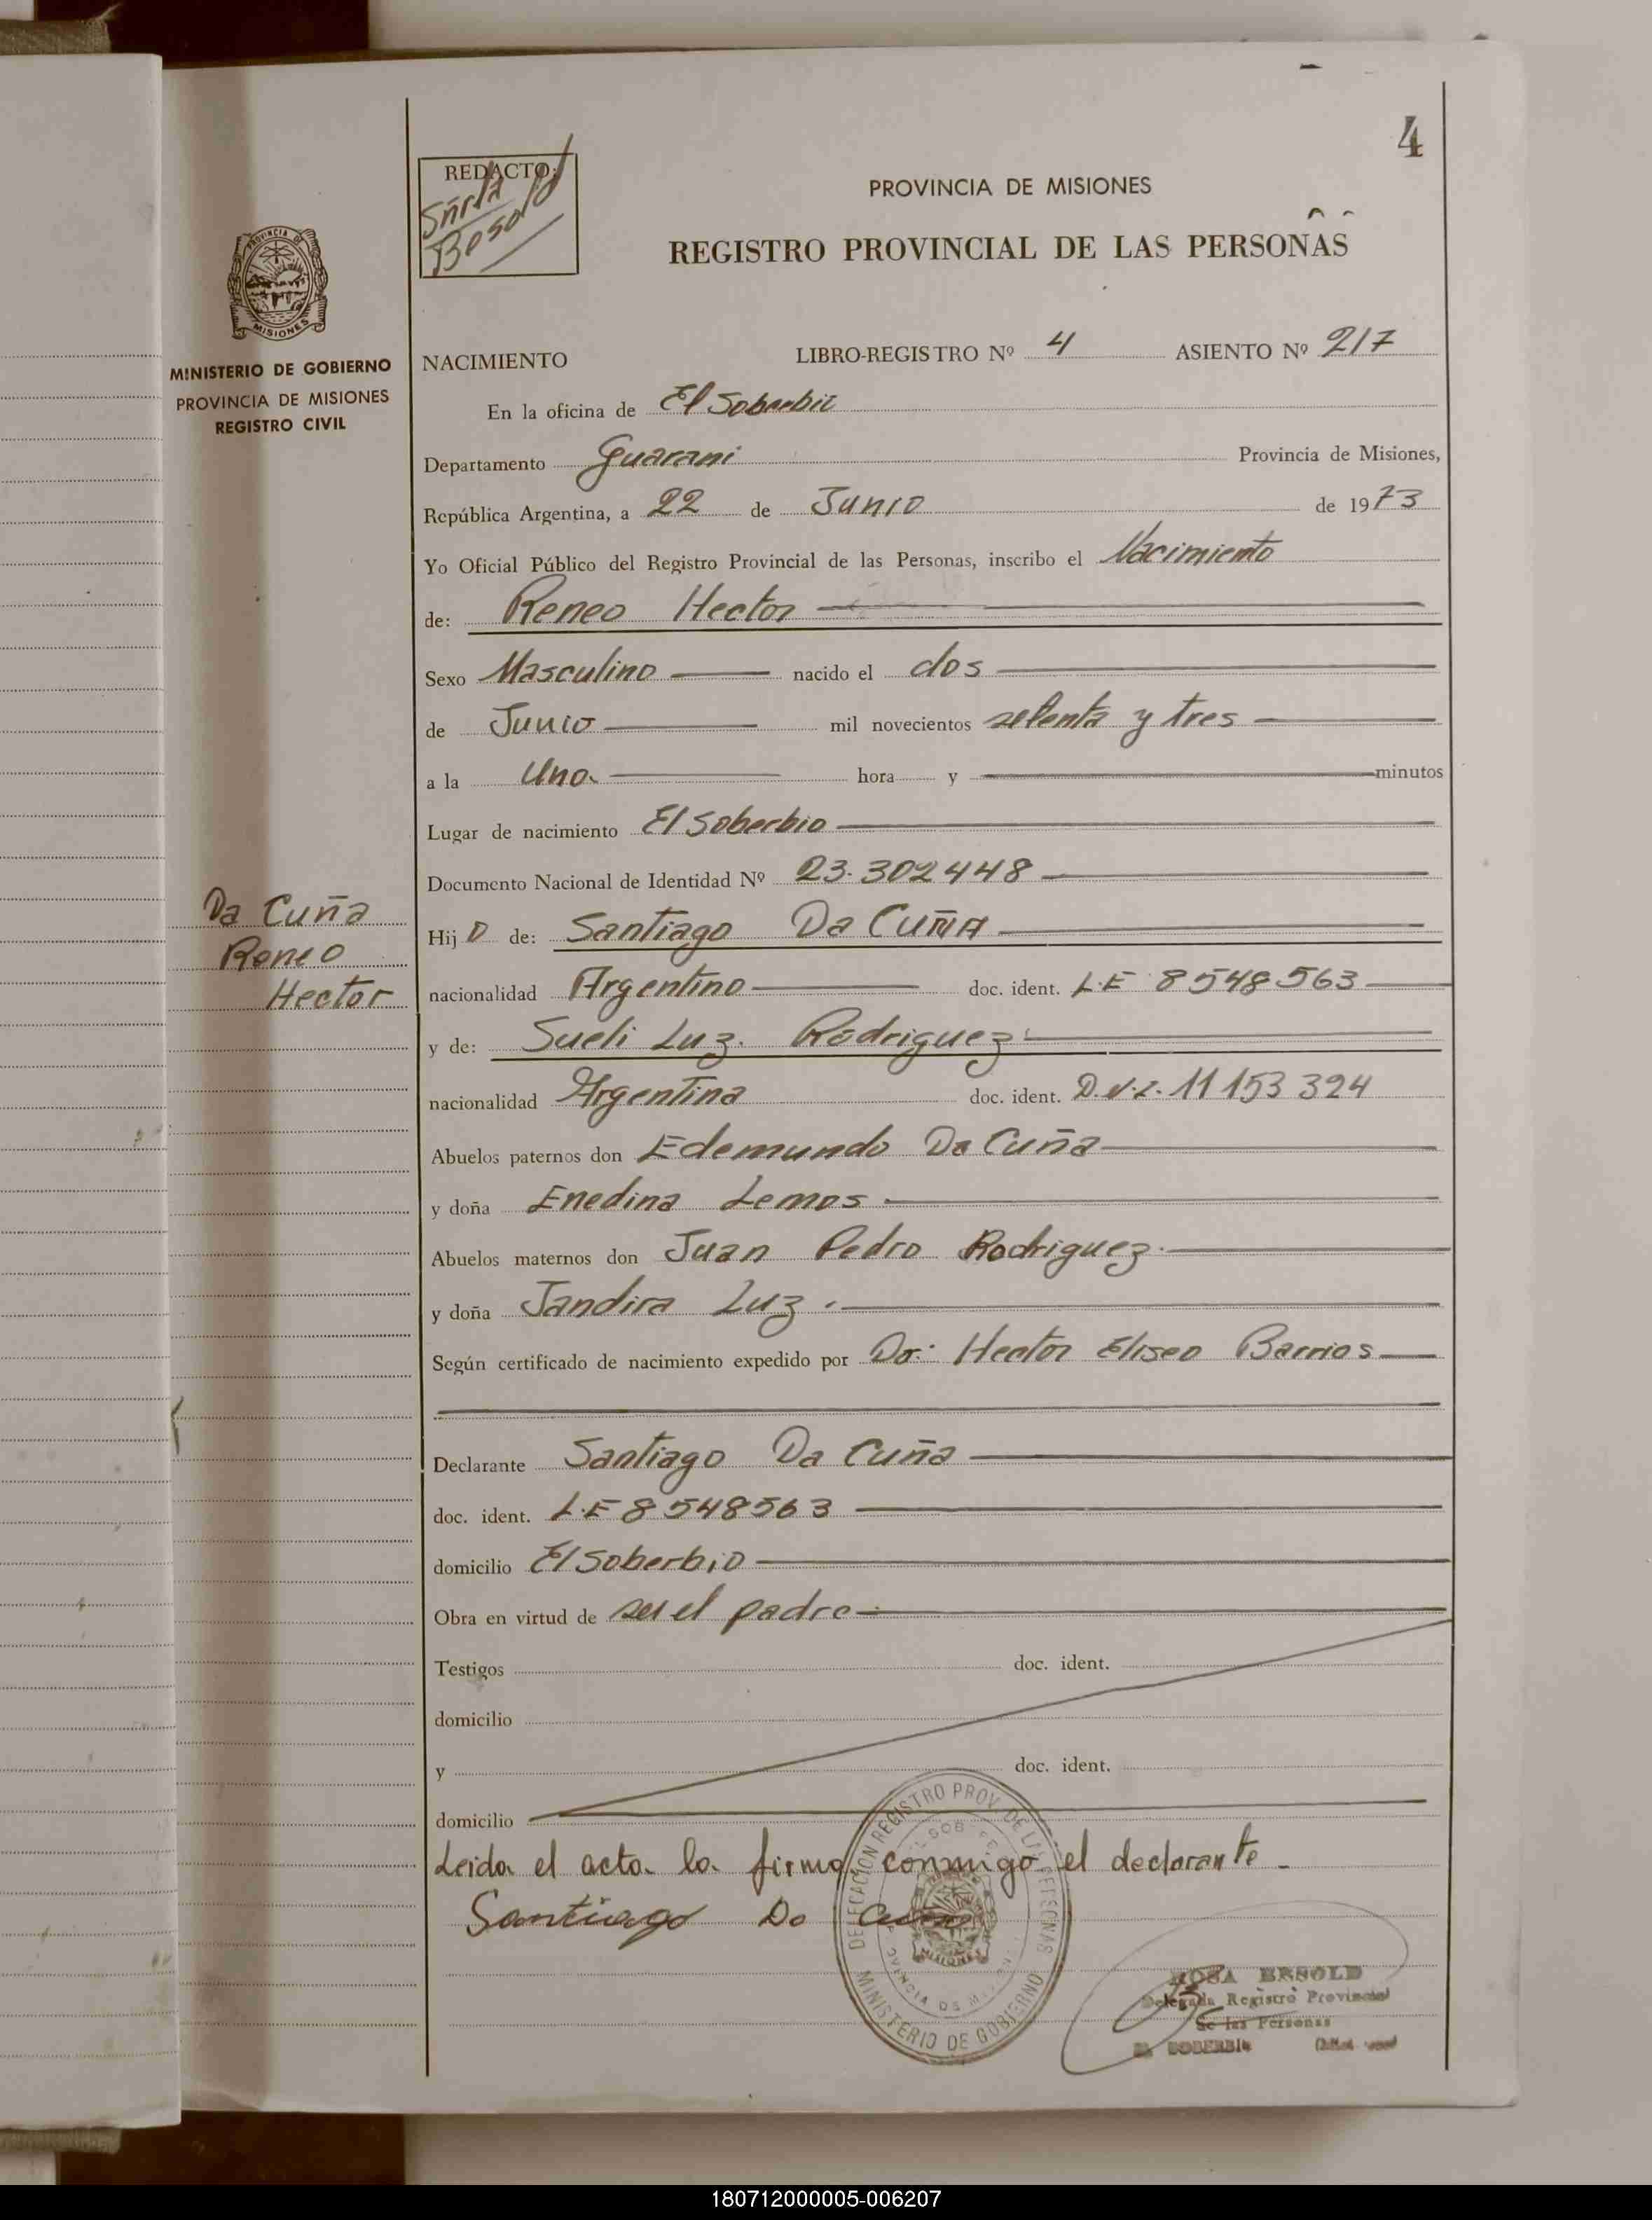 4
REDACTO:
Sñrta
Besold
PROVINCIA DE MISIONES
REGISTRO PROVINCIAL DE LAS PERSONAS
PROVINCIA DE
MISIONES
MINISTERIO DE GOBIERNO
PROVINCIA DE MISIONES
REGISTRO CIVIL
NACIMIENTO LIBRO-REGISTRO Nº 4 ASIENTO Nº 217
En la oficina de El Soberbio
Departamento Guarani Provincia de Misiones,
República Argentina, a 22 de Junio de 1973
Yo Oficial Público del Registro Provincial de las Personas, inscribo el Nacimiento
de: Reneo Hector
Sexo Masculino nacido el dos
de Junio mil novecientos setenta y tres
a la Una hora y minutos
Lugar de nacimiento El Soberbio
Documento Nacional de Identidad Nº 23.302448
Da Cuña
Reneo
Hector
Hijo de: Santiago Da CUÑA
nacionalidad Argentino doc. ident. L.E 8548563
y de: Sueli Luz. Rodriguez
nacionalidad Argentina doc. ident. D.N.I. 11153324
Abuelos paternos don Edemundo Da Cuña
y doña Enedina Lemos
Abuelos maternos don Juan Pedro Rodriguez.
y doña Jandira Luz.
Según certificado de nacimiento expedido por Dr: Hector Eliseo Barrios
Declarante Santiago Da Cuña
doc. ident. L.E 8548563
domicilio El Soberbio
Obra en virtud de ser el padre
Testigos doc. ident.
domicilio
y doc. ident.
domicilio
Leida el acta la firma conmigo el declarante
Santiago Da Cuña
DELEGACION REGISTRO PROV. DE LAS PERSONAS
MINISTERIO DE GOBIERNO
MISIONES
ROSA BESOLD
Delegada Registro Provincial
de las Personas
EL SOBERBIO
180712000005-006207